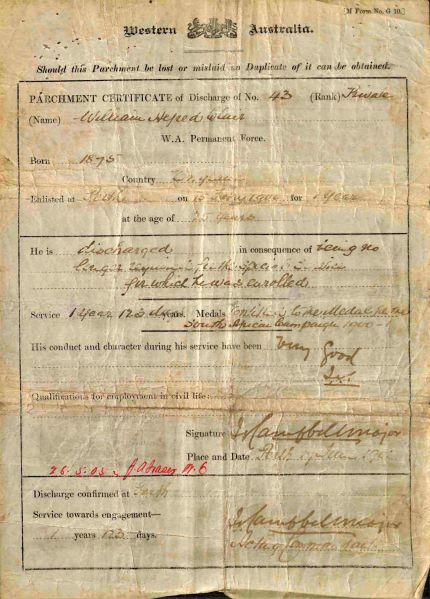 [M Form No. G 10.]
Western Australia.
Should this Parchment be lost or mislaid no Duplicate of it can be obtained.
PARCHMENT CERTIFICATE of Discharge of No. 43 (Rank) Private
(Name) William Alfred
W.A. Permanent Force.
Born 1875
Country
Enlisted at Perth on for 1 Year
at the age of 25 years
He is discharged in consequence of being no
longer required for the special
for which he was enrolled
Service 1 Year 123 days. Medals
South African Campaign 1900-1
His conduct and character during his service have been Very good
Qualifications for employment in civil life
Signature J Campbell Major
Place and Date Perth
26.5.05
Discharge confirmed at Perth
Service towards engagement—
1 years 123 days.
J Campbell Major
Acting Commandant